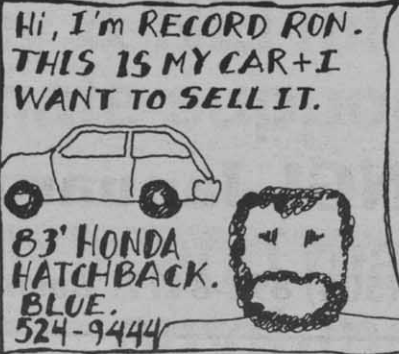 Hi, I'M RECORD RON.
THIS IS MY CAR+I
WANT TO SELL IT.
83' HONDA
HATCHBACK.
BLUE.
524-9444